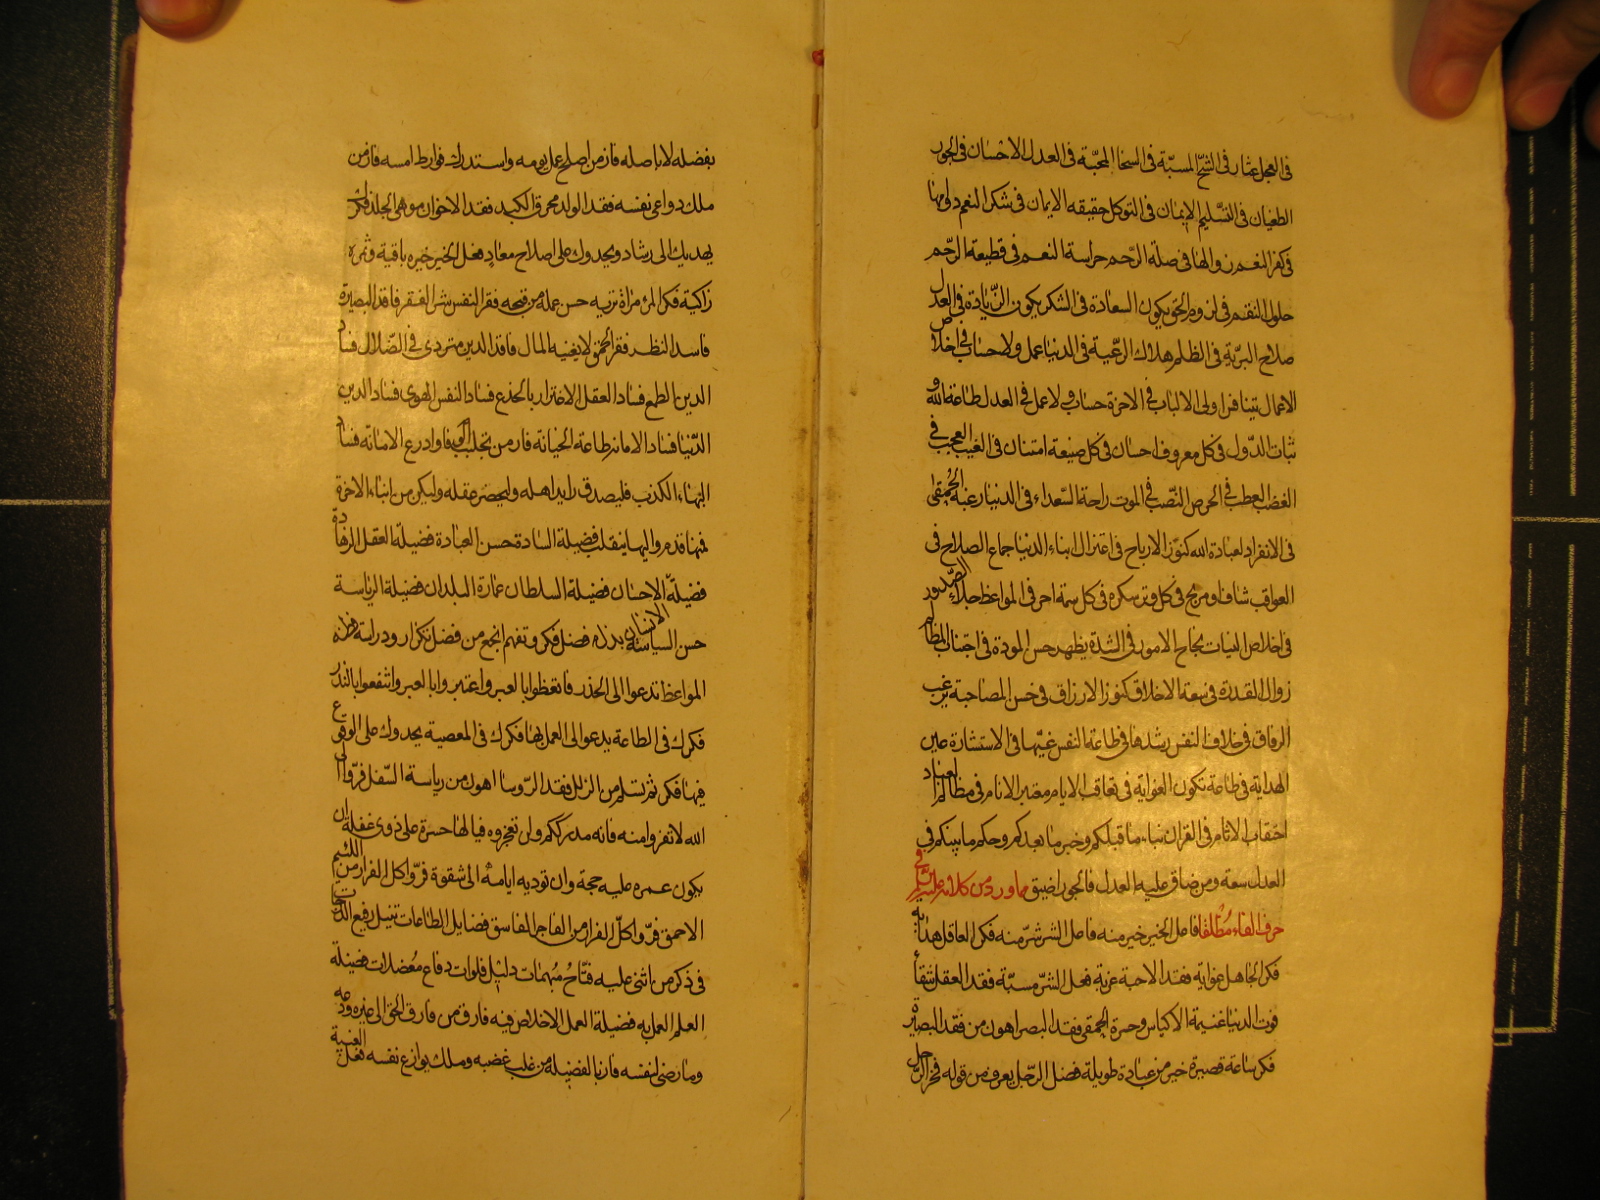 فى العجل عثار فى الشحّ المسبّة فى السخا المحبّة فى العدل الاحسان فى الجور
الطغيان فى التسليم الايمان فى التوكل حقيقه الايمان فى شكر النعم دوامها
فى كفر النعم زوالها فى صلة الرحم حراسة النعم فى قطيعة الرحم
حلول النقم فى لزوم الحق يكون السعادة فى الشكر يكون الزيادة فى العدل
صلاح البريّة فى الظلم هلاك الرعية فى الدنيا عمل ولا حساب فى اخلاص
الاعمال يتنافس اولى الالباب فى الاخرة حساب ولا عمل فى العدل طاعة الله و
ثبات الدول فى كل معروف احسان فى كل صنيعة امتنان فى الغيب العجب فى
الغضب العطب فى الحرص النصب فى الموت راحة السعداء فى الدنيا رغبة الحمقى
فى الانفراد لعبادة الله كنوز الارباح فى اعتزال ابناء الدنيا جماع الصلاح فى
العواقب شاف او مريح فى كل وقت سكرة فى كل نسمة اجر فى المواعظ جلاء الصدور
فى اخلاص النيات نجاح الامور فى الشدة يظهر حسن المودة فى اجتناب المظالم
زوال القدرة فى سعة الاخلاق كنوز الارزاق فى حسن المصاحبة يرغب
الرفاق فى خلاف النفس رشدها فى طاعة النفس غيّها فى الاستشارة عين
الهداية فى طاعة تكون الغواية فى تعاقب الايام معتبر الانام فى مظالم العباد
احتقاب الاثام فى القران نباء ما قبلكم وخبر ما بعدكم وحكم ما بينكم فى
العدل سعة ومن ضاق عليه العدل فالجور اضيق مما ورد من كلامه عليه السلام فى
حرف الفاء مطلقا فاعل الخير خير منه فاعل الشر شرّ منه فكر العاقل هداية
فكر الجاهل غواية فقد الاحبة غربة فعل الشرّ مسبّة فقد العقل شقاء
فوت الدنيا غنيمة الاكياس وحسرة الحمقى فقد البصر اهون من فقد البصيرة
فكر ساعة قصيرة خير من عبادة طويلة فضل الرجل يعرف من قوله فخر الرجل
بفضله لا باصله فاز من اصلح عمل يومه واستدرك فوارط امسه فاز من
ملك دواعى نفسه فقد الولد محرق الكبد فقد الاخوان موهى الجلد فكرك
يهديك الى رشاد ويحدوك على اصلاح معاد فعل الخير ذخيره باقية وثمره
زاكية فكر المرء مراة تريه حسن عمله من قبحه فقر النفس شر الفقر فاقد البصيرة
فاسد النظر فقر الحمق لا يغنيه المال فاقد الدين متردى فى الضلال فساد
الدين الطمع فساد العقل الاغترار بالخدع فساد النفس الهوى فساد الدين
الدنيا فساد الامانة طاعة الخيانة فاز من تجلبب الوفا وادرع الامانة فساد
البهاء الكذب فليصدق رايد اهله وليحضر عقله وليكن من ابناء الاخرة
فمنها قدم واليها ينقلب فضيلة السادة حسن العبادة فضيلة العقل الزهادة
فضيلة الاحسان فضيلة السلطان عمارة البلدان فضيلة الرياسة
حسن السياسة الانسان بذله فضل فكر وتفهم انجع من فضل تكرار ودراسة فطنة
المواعظ تدعوا الى الحذر فاتعظوا بالعبر واعتبروا بالعبر وانتفعوا بالنذر
فكرك فى الطاعة يدعوا الى العمل بها فكرك فى المعصية يحدوك على الوقوع
فيها فكر ثم تسلم من الزلل فقد الروسا اهون من رياسة السفل فرّوا الى
الله لا تفروا منه فانه مدرككم ولن تعجزوه فيا لها حسرة على ذوى غفلة ان
يكون عمره عليه حجة وان توديه ايامه الى شقوة فرّوا كل الفرار من اللئيم
الاحمق فرّوا كلّ الفرار من الفاجر الفاسق فضايل الطاعات تنيل رفيع الدرجات
فى ذكر من اثنى عليه فتّاح مبهمات دليل فلوات دفاع معضلات فضيلة
العلم العمل به فضيلة العمل الاخلاص فيه فارق من فارق الحق الى غيره ودعه
وما رضى لنفسه فاز بالفضيلة من غلب غضبه وملك نوازع نفسه فعل الغيبة